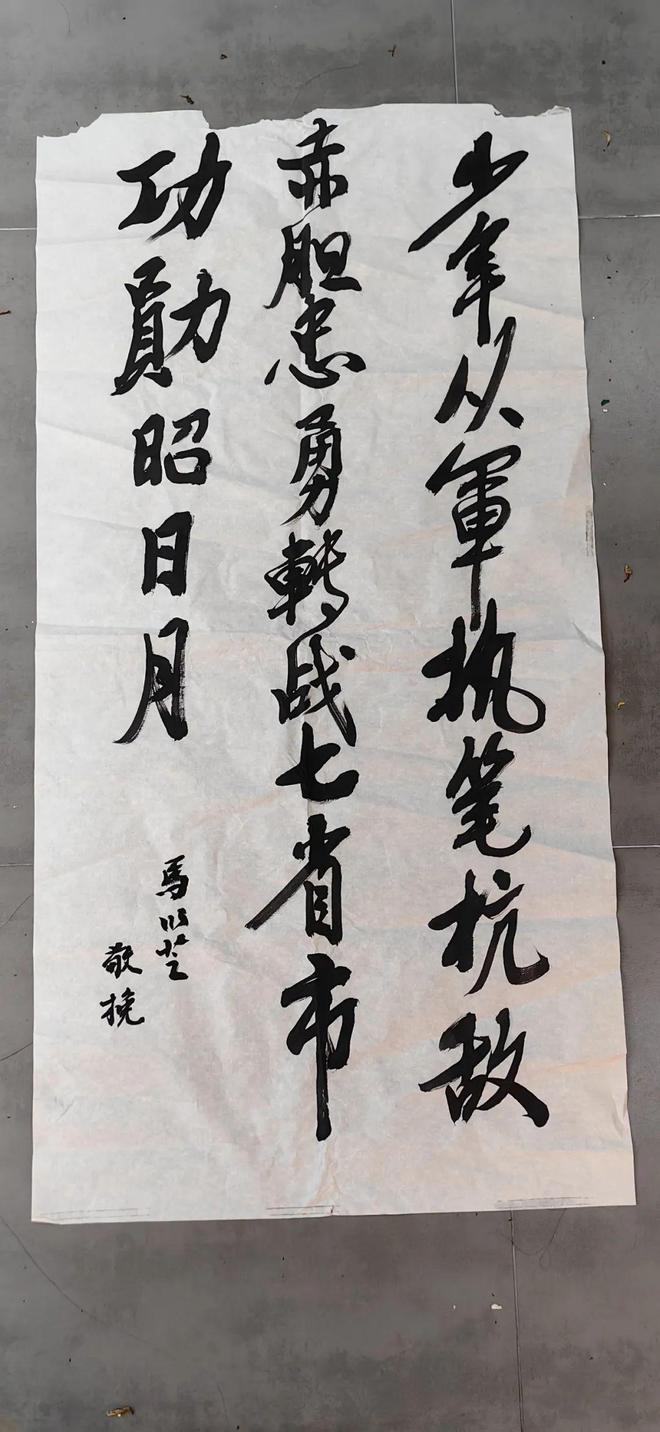 少年从軍执笔抗敌
赤胆忠勇轉战七省市
功勛昭日月
馬芝
敬挽